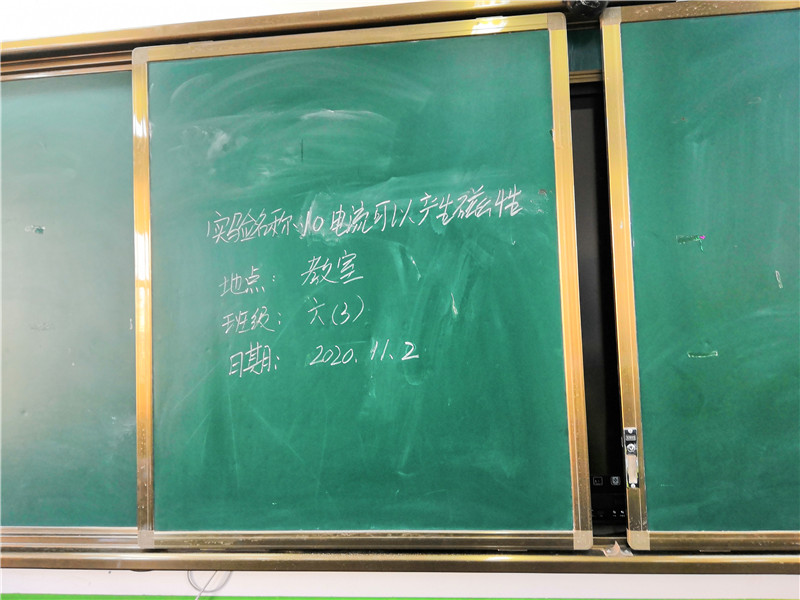 实验名称、10电流可以产生磁性
地点：教室
班级：六(3)
日期：2020.11.2